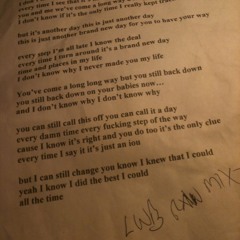 I don't see
you and me we've come a long way
I don't know if it's the only time I really kept
but it's another day this is just another day
this is just another brand new day for you to have your way
every step I'm all late I know the deal
every time I turn around it's a brand new day
time and places in my life
I don't know why I never made you my life
You've come a long long way but you still back down
you still back down on your babies now...
and I don't know why I don't know why
you can still call this off you can call it a day
every damn time every fucking step of the way
cause I know it's right and you do too it's the only clue
every time I say it it's just an iou
but I can still change you I knew that I could
yeah I know I did the best I could
all the time
LWB RAW MIX